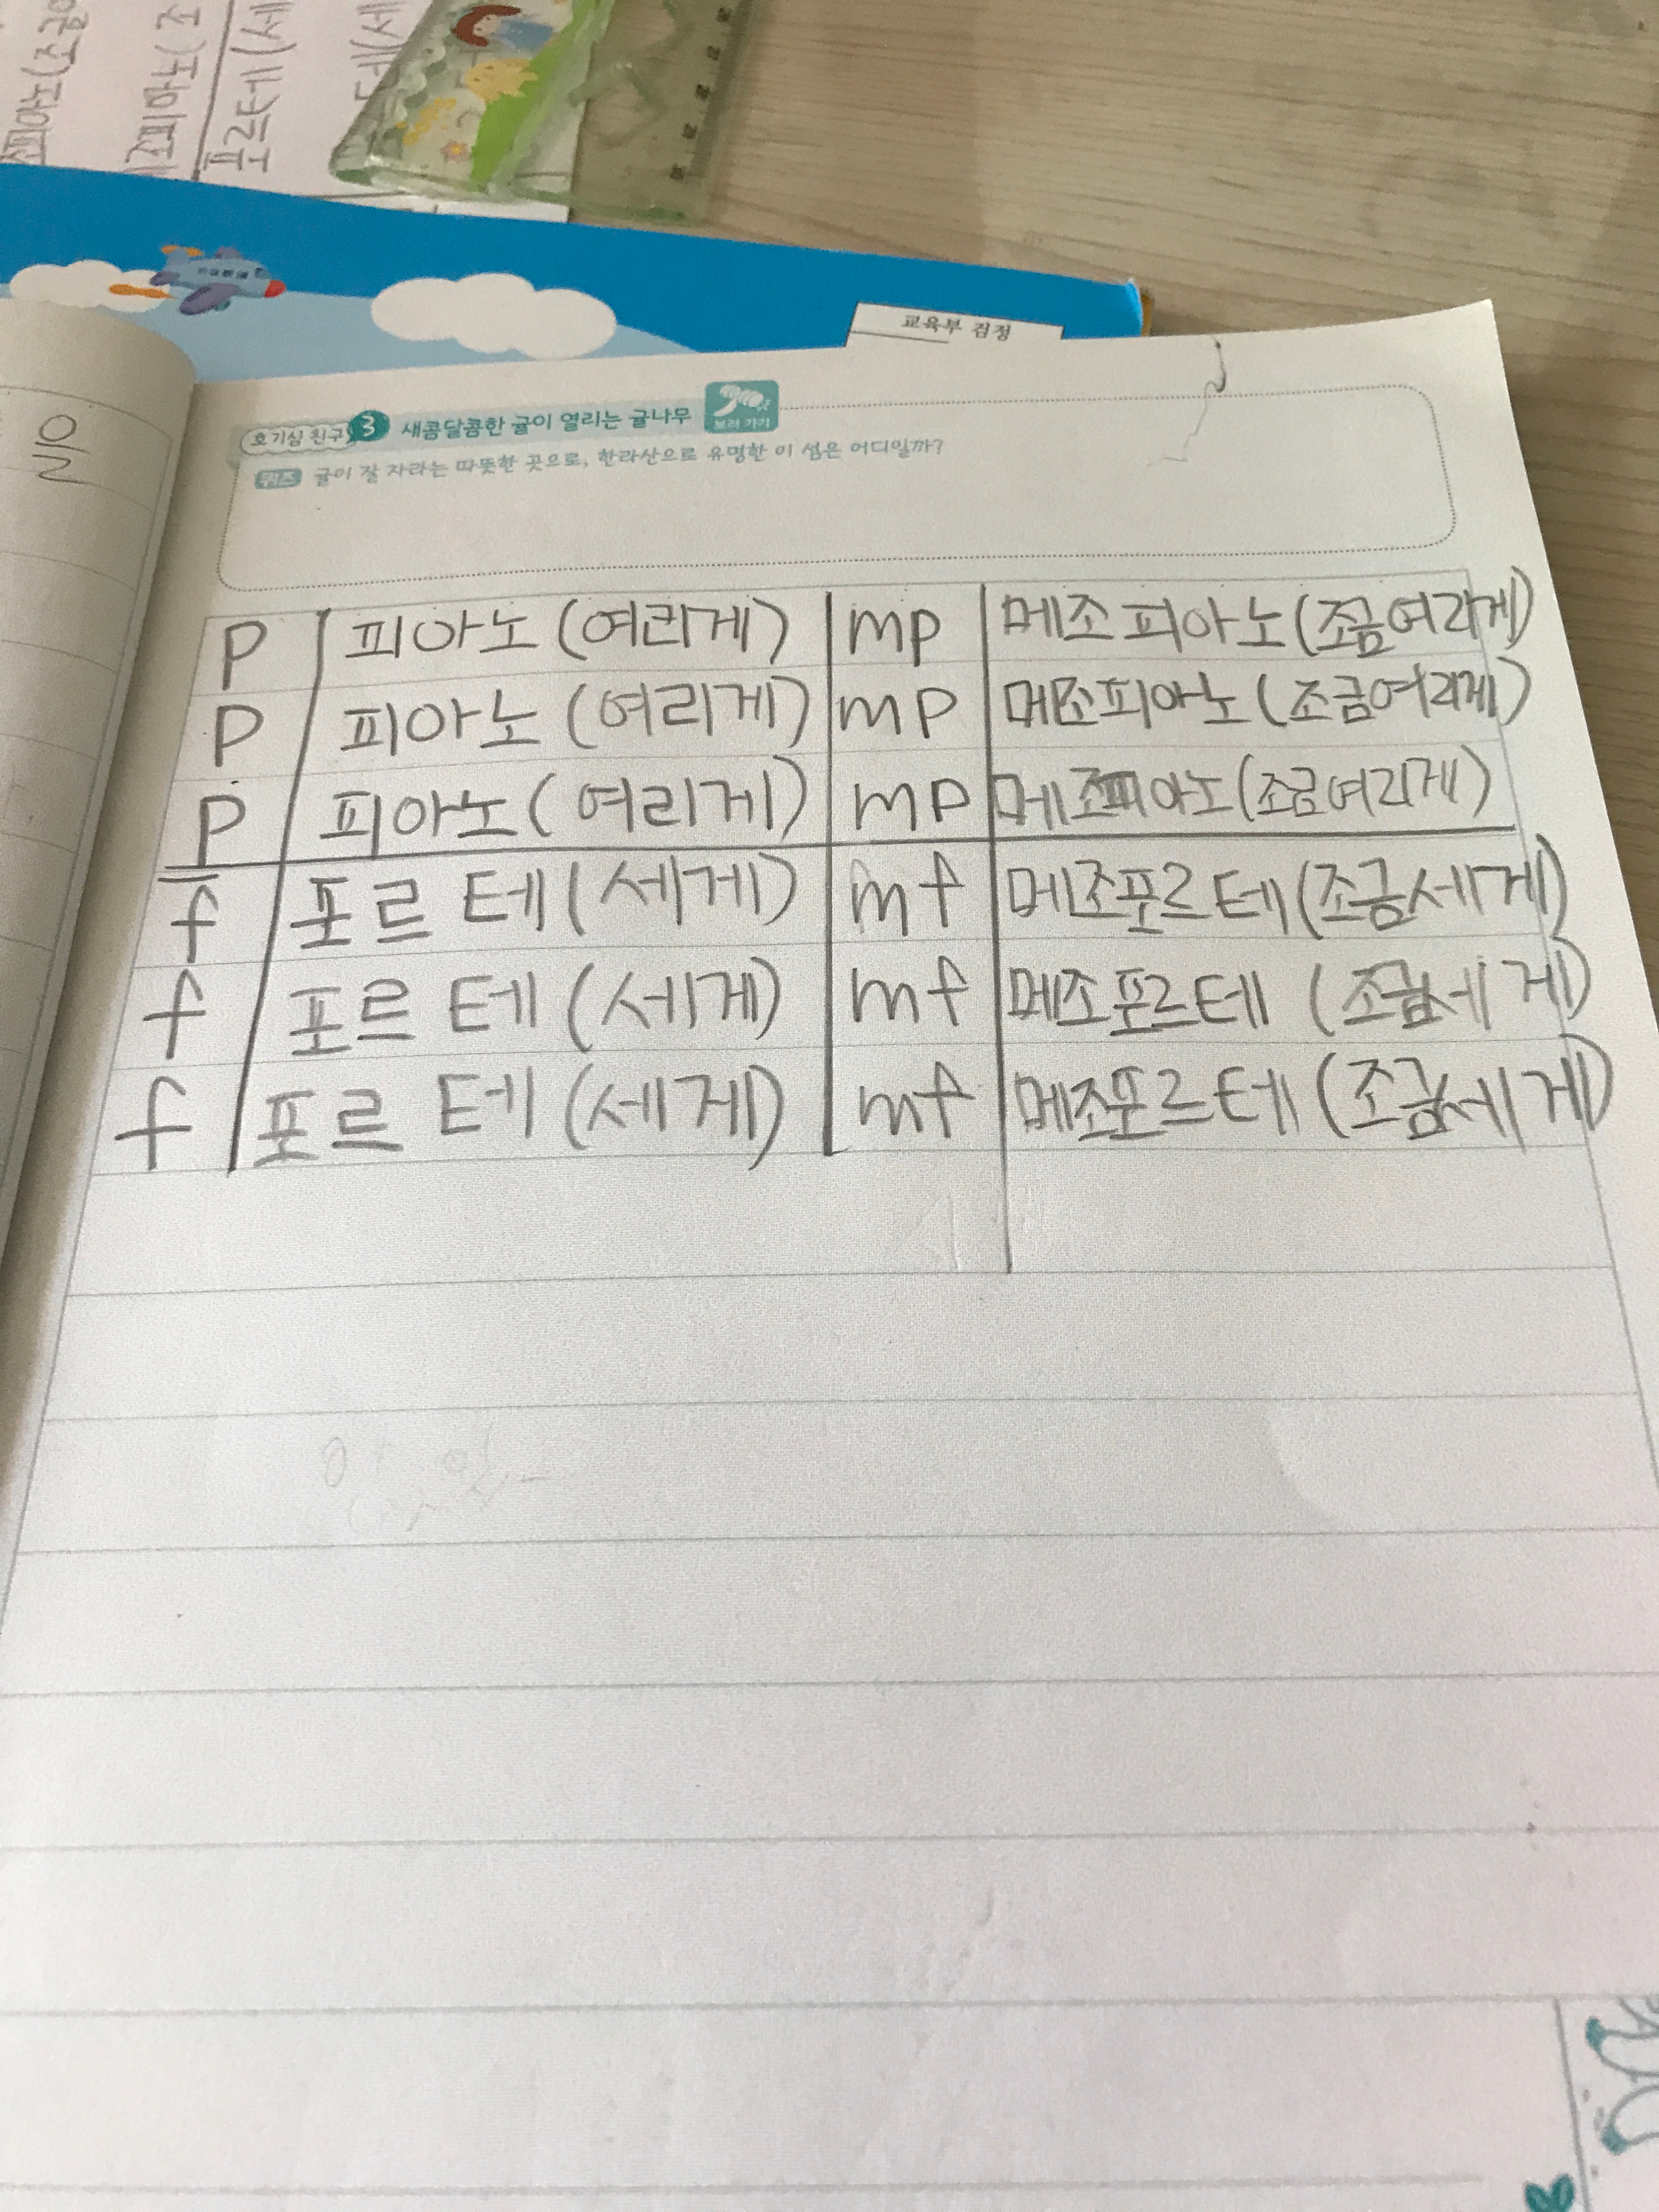 조피아노(조금여
조피아노(조
포르테(세
교육부 검정
을
호기심 친구 3 새콤달콤한 귤이 열리는 귤나무 보러 가기
퀴즈 귤이 잘 자라는 따뜻한 곳으로, 한라산으로 유명한 이 섬은 어디일까?
P 피아노(여리게) mp 메조피아노(조금여리게)
P 피아노(여리게) mp 메조피아노(조금여리게)
P 피아노(여리게) mp 메조피아노(조금여리게)
f 포르테(세게) mf 메조포르테(조금세게)
f 포르테(세게) mf 메조포르테(조금세게)
f 포르테(세게) mf 메조포르테(조금세게)